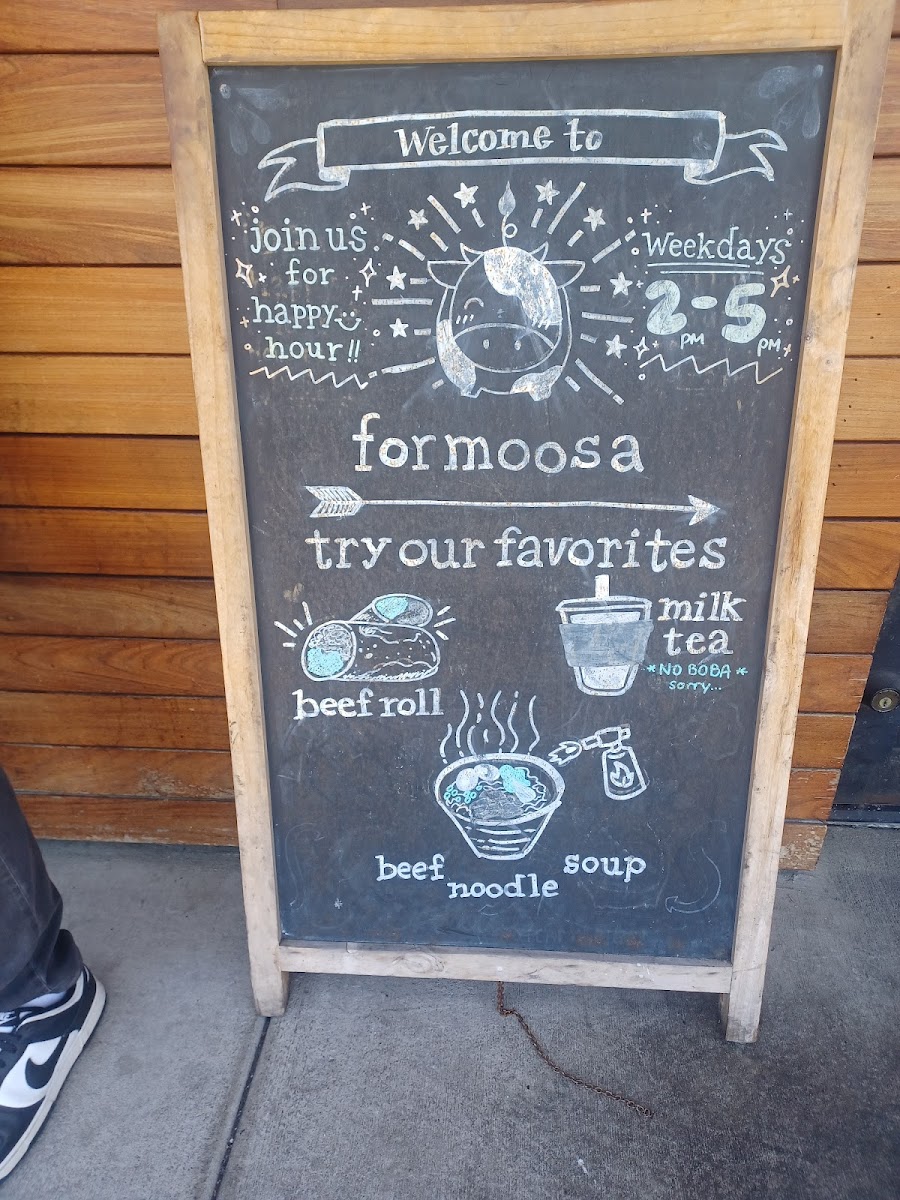 Welcome to
join us
for
happy
hour!!
Weekdays
2-5
PM PM
formoosa
try our favorites
beef roll
milk
tea
*NO BOBA*
sorry...
beef noodle soup